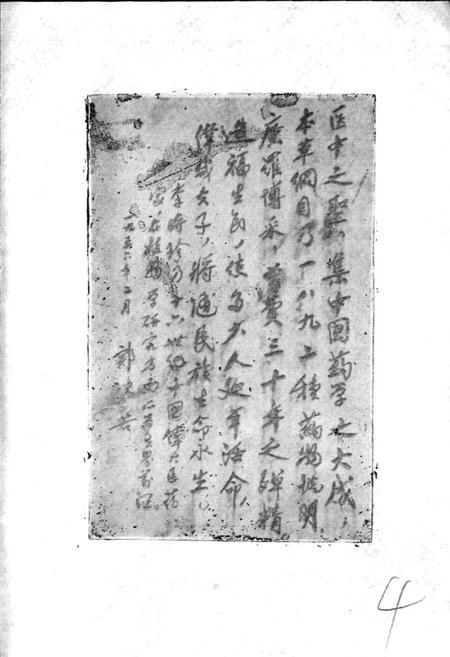 医中之聖，集中國葯学之大成，
本草綱目乃一八九二種葯物说明，
廣羅博采，曾費三十年之殫精
造福生民，使多少人延年活命，
偉哉夫子，将随民族生命永生。
李時珍乃十六世紀中國偉大医葯
家，在植物学研究方面亦为世界前驱。
一九五六年二月 郭沫若
4